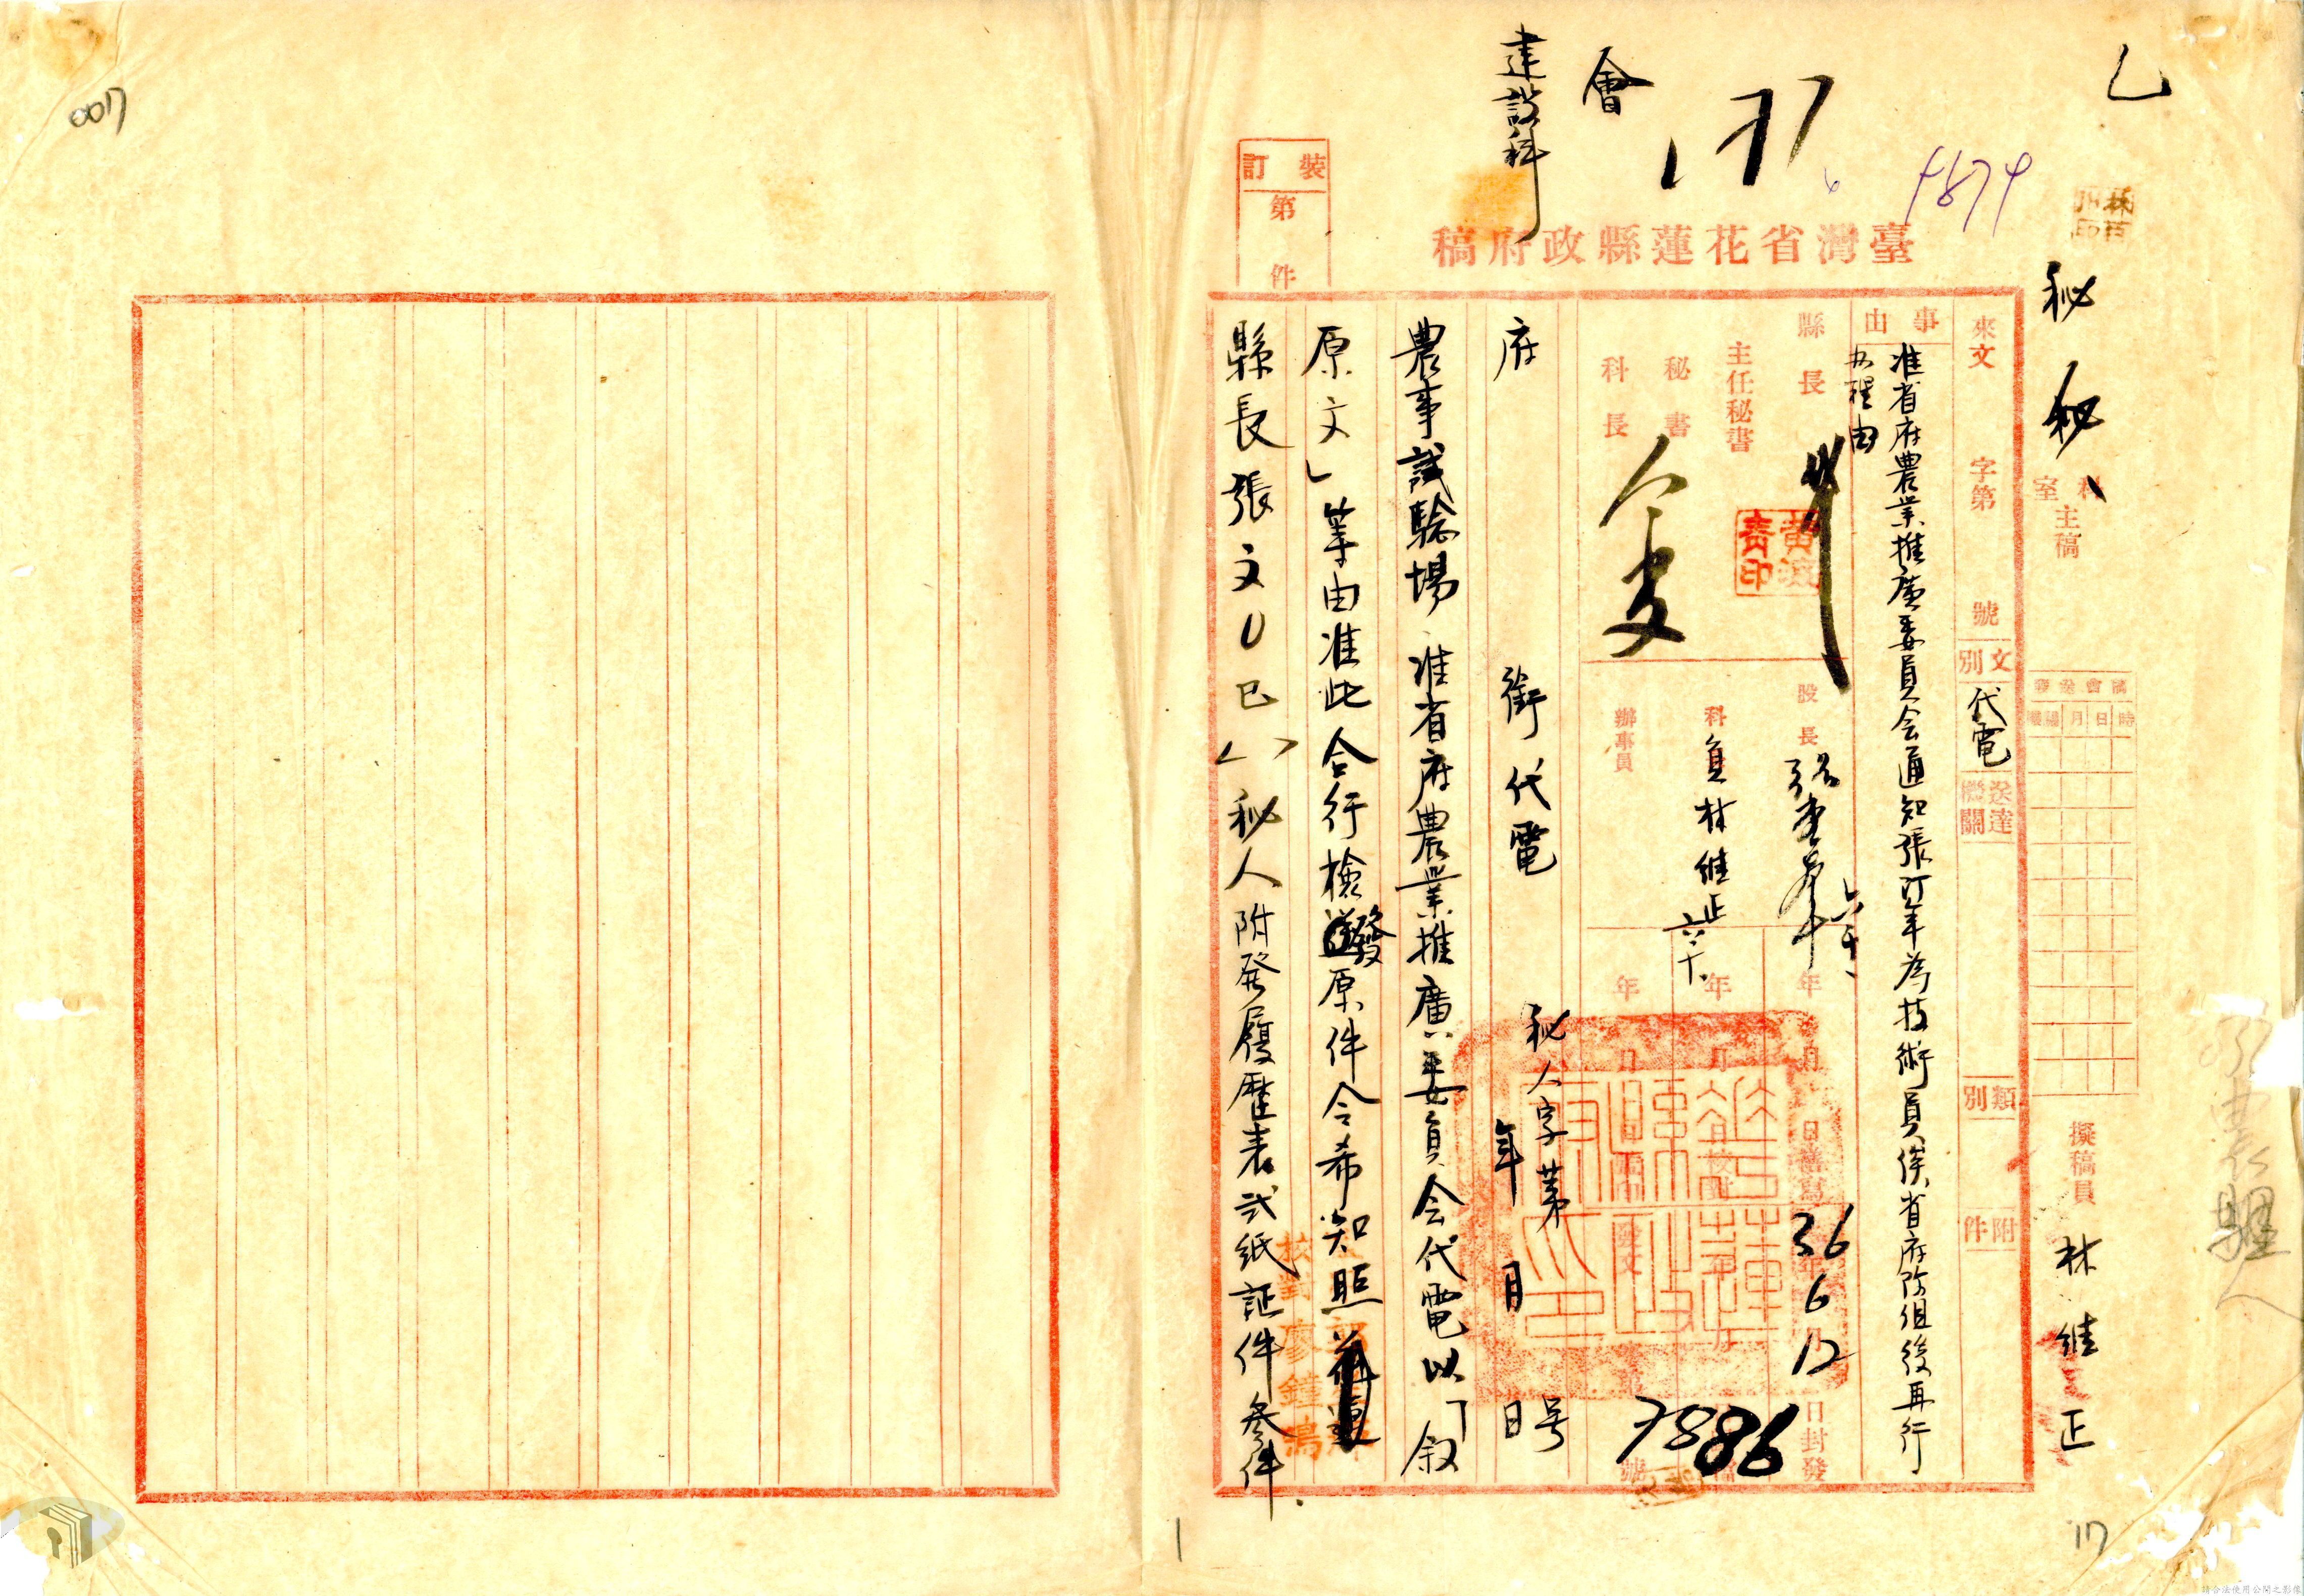 乙
4874
會
建設科
臺灣省花蓮縣政府稿
裝訂
第
件
秘 秘
科室主稿
擬稿員 林維正
來文 字第 號
文別 代電
送達機關
類別
附件
事由
准省府農業推廣委員会通知張訂年為技術員俟省府改組後再行
办理由
縣長
主任秘書
秘書
科長
黃
印
股長
科員林維正 六.十.
辦事員
36 年 6 月 12 日封發
7886
府 銜代電
秘人字第 号
年 月 日
農事試驗場 准省府農業推廣委員会代電以「叙
原文」等由准此合行檢發原件令希知照
縣長張文〇巳 秘人附發履歷表弍紙証件叁件.
校對 廖鐘鳴
0017
17